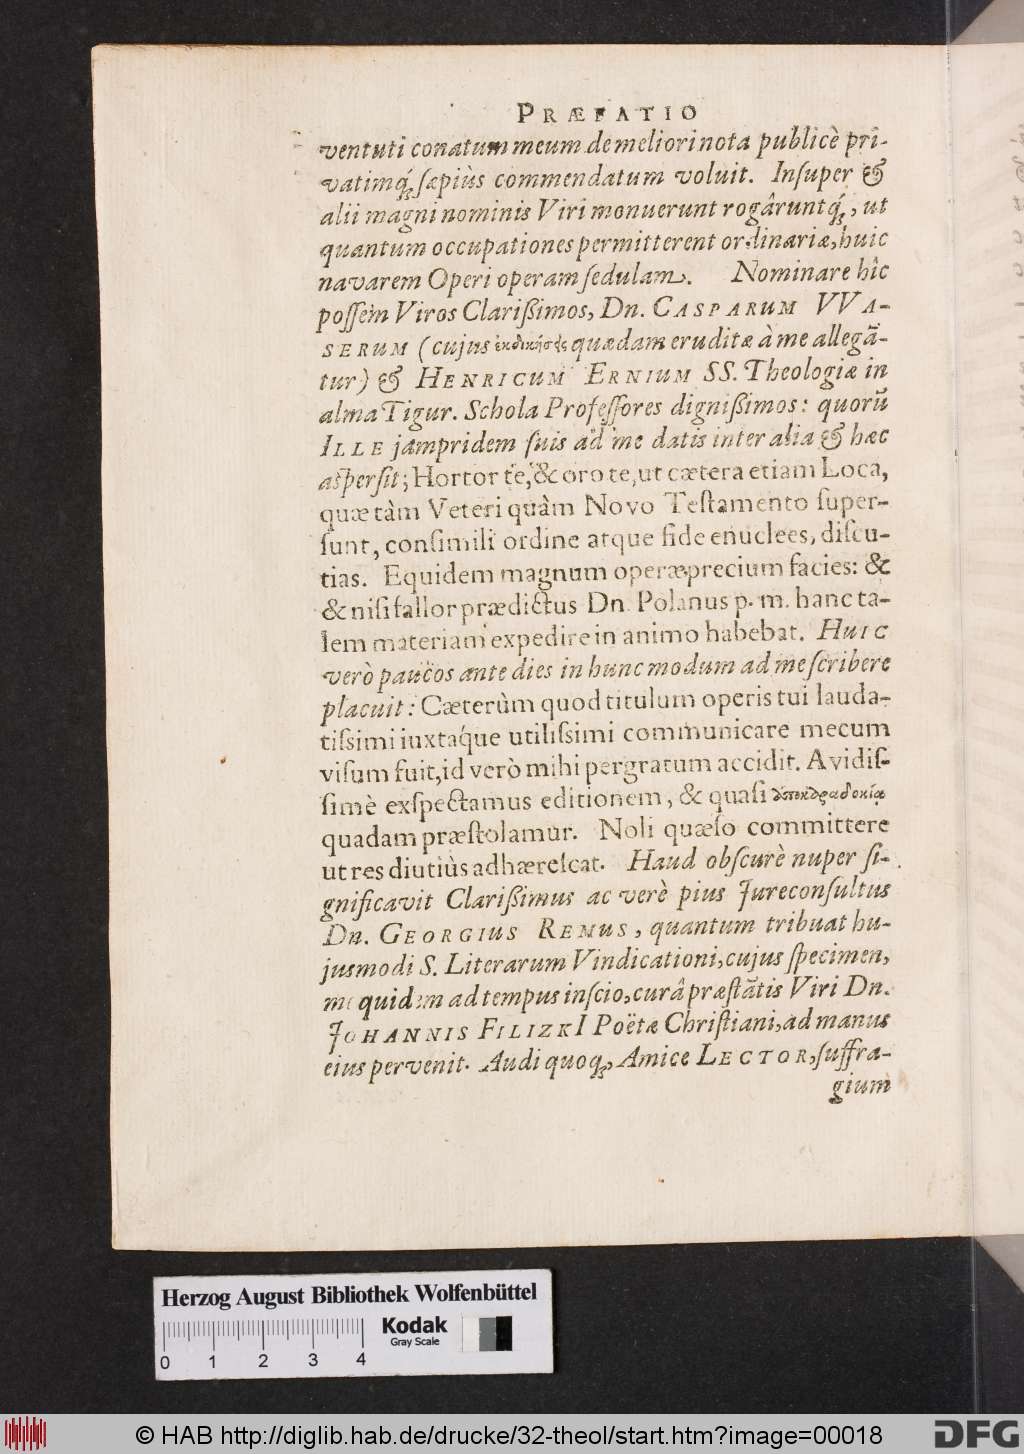 PRÆFATIO
ventuti conatum meum de meliori nota publicè pri-
vatimq́; sæpiùs commendatum voluit. Inſuper &
alii magni nominis Viri monuerunt rogâruntq́;, ut
quantum occupationes permitterent ordinariæ, huic
navarem Operi operam ſedulam. Nominare hîc
poſſem Viros Clarißimos, Dn. CASPARUM VVA-
SERUM (cujus quædam eruditæ à me allegā-
tur) & HENRICUM ERNIUM SS. Theologiæ in
alma Tigur. Schola Profeſſores dignißimos: quorū
ILLE jampridem ſuis ad me datis inter alia & hæc
aſperſit; Hortor te, & oro te, ut cætera etiam Loca,
quæ tàm Veteri quàm Novo Teſtamento ſuper-
ſunt, conſimili ordine atque fide enuclees, diſcu-
tias. Equidem magnum operæprecium facies: &
& niſi fallor prædictus Dn. Polanus p. m. hanc ta-
lem materiam expedire in animo habebat. HUIC
verò paucos ante dies in hunc modum ad me ſcribere
placuit: Cæterùm quod titulum operis tui lauda-
tiſsimi iuxtaq́ue utiliſsimi communicare mecum
viſum fuit, id verò mihi pergratum accidit. Avidiſ-
ſimè exſpectamus editionem, & quaſi
quadam præſtolamur. Noli quæſo committere
ut res diutiùs adhæreſcat. Haud obſcurè nuper ſi-
gnificavit Clarißimus ac verè pius Jureconſultus
Dn. GEORGIUS REMUS, quantum tribuat hu-
jusmodi S. Literarum Vindicationi, cujus ſpecimen,
me quidem ad tempus inſcio, curâ præſtātis Viri Dn.
JOHANNIS FILIZKI Poëtæ Chriſtiani, ad manus
eius pervenit. Audi quoq;, Amice LECTOR, ſuffra-
gium
Herzog August Bibliothek Wolfenbüttel
Kodak
Gray Scale
0 1 2 3 4
© HAB http://diglib.hab.de/drucke/32-theol/start.htm?image=00018
DFG